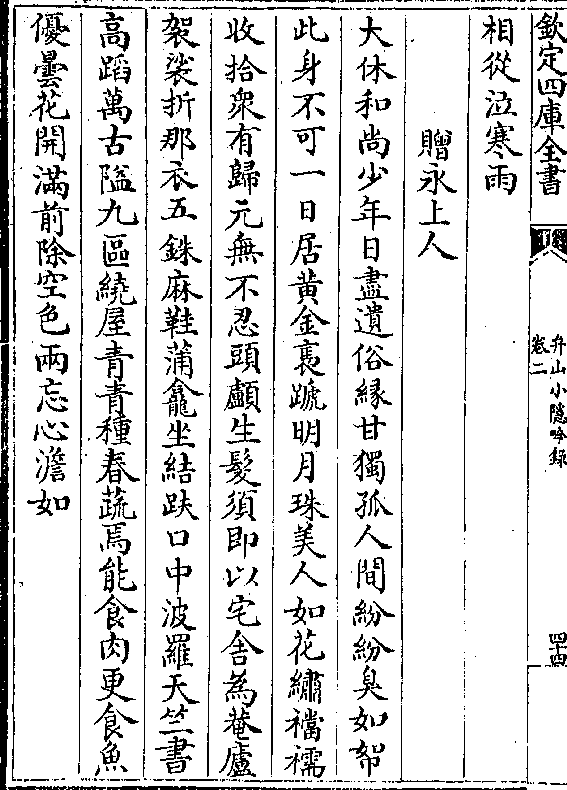 欽定四庫全書
卷二
升山小隱吟錄
四十四
相從泣寒雨
贈永上人
大休和尚少年日盡遺俗縁甘獨孤人間紛紛臭如帤
此身不可一日居黄金裹蹏明月珠美人如花繡襠襦
收拾衆有歸元無不忍頭顱生髮須即以宅舍為菴廬
袈裟折那衣五銖麻鞋蒲龕坐結趺口中波羅天竺書
高蹈萬古隘九區繞屋青青種春蔬焉能食肉更食魚
優曇花開滿前除空色兩忘心澹如